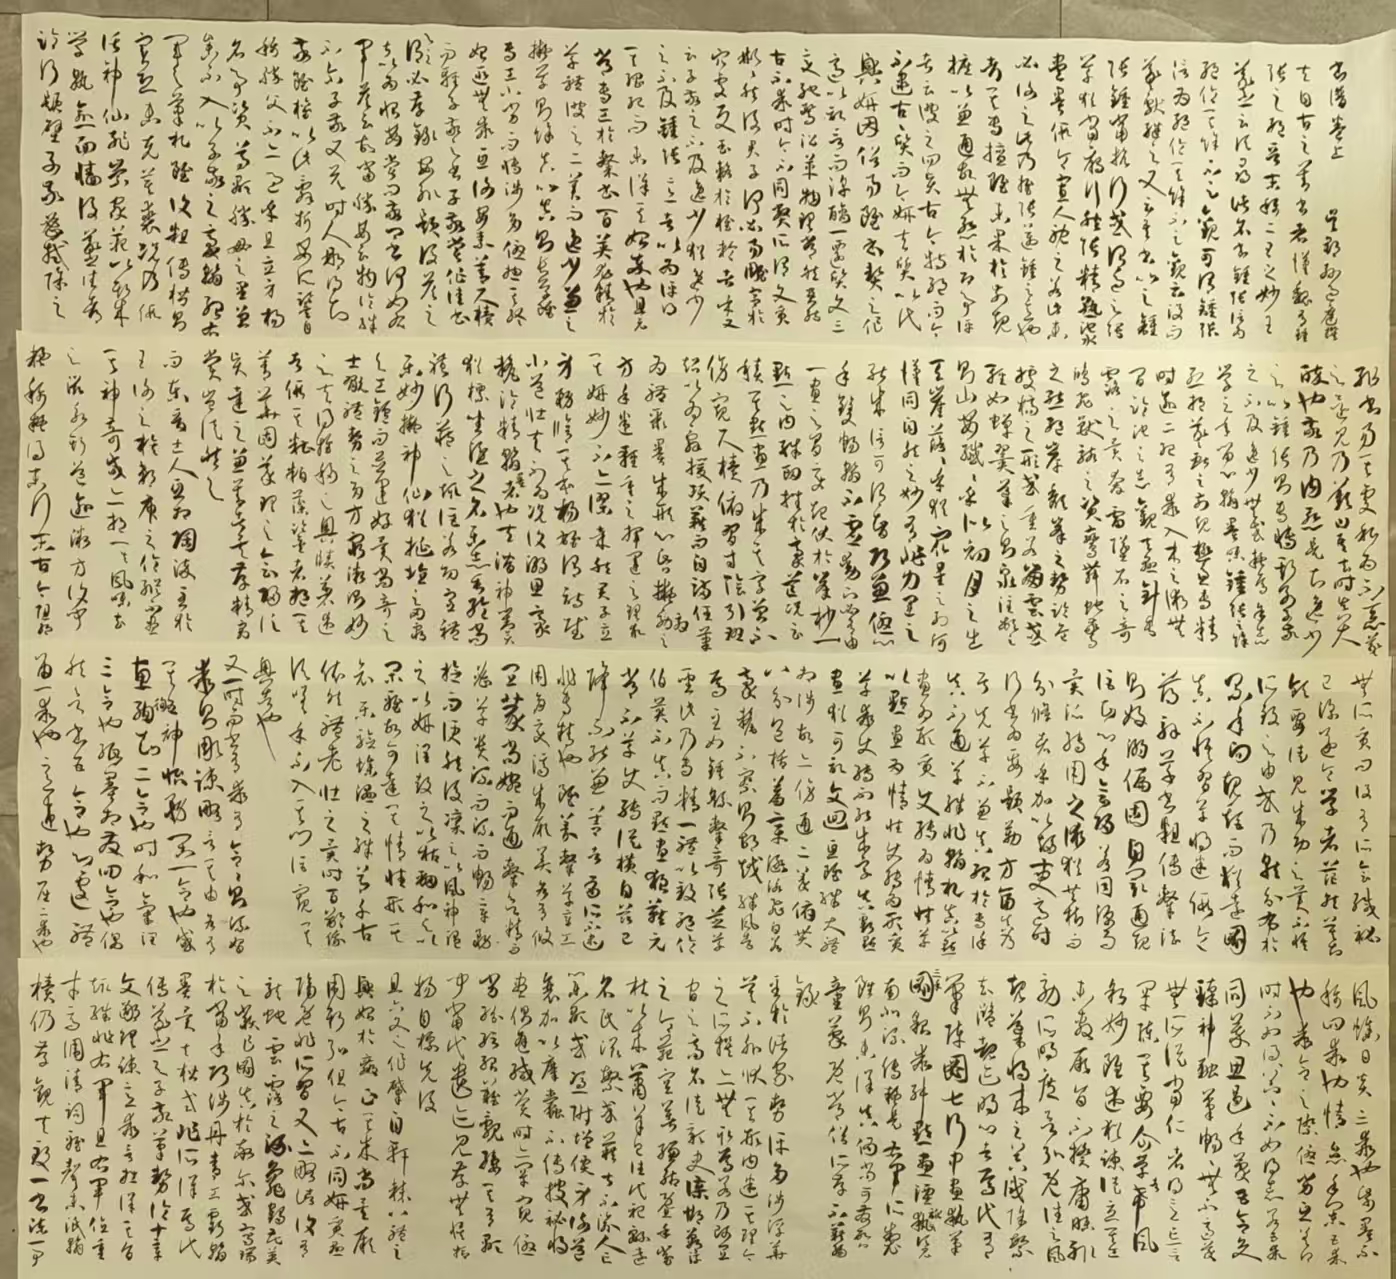 書譜卷上 吳郡孫過庭撰
夫自古之善書者漢魏有鍾
張之絕晉末稱二王之妙王
羲之云頃尋諸名書鍾張信為
絕倫其餘不足觀可謂鍾張
云沒而
羲獻繼之又云吾書比之鍾
張鍾當抗行或謂過之張
草猶當雁行然張精熟池水
盡墨假令寡人耽之若此未
必謝之此乃推張邁鍾之意也
考其專擅雖未果於前規
摭以兼通故無慙於即事評
者云彼之四賢古今特絕而今
不逮古古質而今妍夫質以代
興妍因俗易雖書契之作
適以記言而淳醨一遷質文三
變馳騖沿革物理常然貴能
古不乖時今不同弊所謂文質
彬彬然後君子何必易雕宮於
穴處反玉輅於椎輪者乎又
云子敬之不及逸少猶逸少
之不及鍾張意者以為評得
其綱紀而未詳其始卒也且元
常專工於隸書百英尤精於
草體彼之二美而逸少兼之
擬草則餘真比真則長草雖
專工小劣而博涉多優總其終
始匪無乖互謝安素善尺牘
而輕子敬之書子敬嘗作佳書
與之謂必存錄安輒題後答之
甚以為恨安嘗問敬卿書何如右
軍答云故當勝安云物論殊
不爾子敬又答時人那得知
敬雖權以此辭折安所鑒自
稱勝父不亦過乎且立身揚
名事資尊顯勝母之里曾
參不入以子敬之豪翰紹右
軍之筆札雖復粗傳楷則
實恐未克箕裘況乃假
託神仙恥崇家範以斯成
學孰愈面牆後羲之往都
臨行題壁子敬密拭除之
輒書易其處私為不惡羲
之還見乃歎曰吾去時真大
醉也敬乃內慙是知逸少
之比鍾張則專博斯別子敬
之不及逸少無或疑焉余志
學之年留心翰墨味鍾張之餘
烈挹羲獻之前規極慮專精
時逾二紀有乖入木之術無
間臨池之志觀夫懸針垂
露之異奔雷墜石之奇
鴻飛獸駭之資鸞舞蛇驚
之態絕岸頹峯之勢臨危
據槁之形或重若崩雲或
輕如蟬翼導之則泉注頓之
則山安纖纖乎似初月之出
天崖落落乎猶衆星之列河
漢同自然之妙有非力運之
能成信可謂智巧兼優心
手雙暢翰不虛動下必有由
一畫之間變起伏於峯杪一
點之內殊衄挫於豪芒況云
積其點畫乃成其字曾不
傍窺尺牘俯習寸陰引班
超以為辭援項籍而自滿任筆
為體聚墨成形心昏擬効之
方手迷揮運之理求
其妍妙不亦謬哉然君子立
身務修其本楊雄謂詩賦
小道壯夫不為況復溺思豪
氂淪精翰墨者也夫潛神對奕
猶標坐隱之名樂志垂綸尚
體行藏之趣詎若功宣禮
樂妙擬神仙猶埏埴之罔窮
與工鑪而並運好異尚奇之
士翫體勢之多方窮微測妙
之夫得推移之奧賾著述
者假其糟粕藻鑒者挹其
菁華固義理之會歸信
賢達之兼善者矣存精寓
賞豈徒然與
而東晉士人互相陶淬至於
王謝之族郗庾之倫縱不盡
其神奇咸亦挹其風味去
之滋永斯道逾微方復聞
疑稱疑得末行末古今阻絕
無所質問設有所會緘秘
已深遂令學者茫然莫知
領要徒見成功之美不悟
所致之由或乃就分布於
累年向規矩而猶遠圖
真不悟習草將迷假令
薄解草書粗傳隸法
則好溺偏固自閡通規
詎知心手會歸若同源而
異派轉用之術猶共樹而
分條者乎加以趨變適時
行書為要題勒方畐真乃
居先草不兼真殆於專謹
真不通草殊非翰札真以點
畫為形質使轉為情性草
以點畫為情性使轉為形質
草乖使轉不能成字真虧點
畫猶可記文迴互雖殊大體
相涉故亦傍通二篆俯貫
八分包括篇章涵泳飛白若
豪釐不察則胡越殊風者
焉至如鍾繇隸奇張芝草
聖此乃專精一體以致絕倫
伯英不真而點畫狼藉元
常不草使轉縱橫自茲已
降不能兼善者有所不逮
非專精也雖篆隸草章工
用多變濟成厥美各有攸
宜篆尚婉而通隸欲精而
密草貴流而暢章務
檢而便然後凜之以風神溫
之以妍潤鼓之以枯勁和之以
閑雅故可達其情性形其
哀樂驗燥濕之殊節千古
依然體老壯之異時百齡俄
頃嗟乎不入其門詎窺其
奧者也
又一時而書有乖有合合則流媚
乖則彫疎略言其由各有
其五神怡務閑一合也感
惠徇知二合也時和氣潤
三合也紙墨相發四合也偶
然欲書五合也心遽體
留一乖也意違勢屈二乖也
風燥日炎三乖也紙墨不
稱四乖也情怠手闌五乖
也乖合之際優劣互差
得時不如得器得器不如得志若五乖
同萃思遏手蒙五合交
臻神融筆暢暢無不適蒙
無所從當仁者得意忘言
罕陳其要企學者希風
敍妙雖述猶疎徒立其工
未敷厥旨不揆庸昧輒
効所明庶欲弘既往之風
規導將來之器識除繁
去濫覩迹明心者焉代有
筆陣圖七行中畫執筆
三手圖貌乖舛點畫湮訛頃見
南北流傳疑是右軍所製
雖則未詳真偽尚可發啓
童蒙既常俗所存不藉編
錄
至於諸家勢評多涉浮華
莫不外狀其形內迷其理今
之所撰亦無取焉若乃師宜
官之高名徒彰史牒邯鄲淳
之令範空著縑緗暨乎崔
杜以來蕭羊已往代祀緜遠
名氏滋繁或藉甚不渝人亡
業顯或憑附增價身謝道
衰加以糜蠹不傳搜秘將
盡偶逢緘賞時亦罕窺優
劣紛紜殆難覼縷其有顯
聞當代遺迹見存無俟抑
揚自標先後
且六文之作肇自軒轅八體之
興始於嬴正其來尚矣厥
用斯弘但今古不同妍質懸
隔既非所習又亦略諸復有
龍蛇雲露之流龜鶴花英
之類乍圖真於率爾或寫瑞
於當年巧涉丹青工虧翰
墨異夫楷式非所詳焉代
傳羲之與子敬筆勢論十章
文鄙理疎意乖言拙詳其旨
趣殊非右軍且右軍位重
才高調清詞雅聲塵未泯翰
牘仍存觀夫致一書陳一事